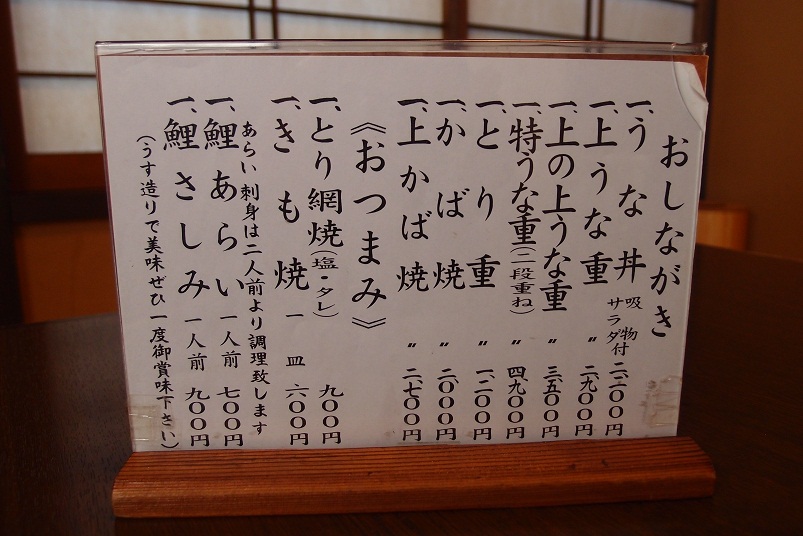 おしながき
一、うな丼 吸物 サラダ付 二、二〇〇円
一、上うな重 〃 二、九〇〇円
一、上の上うな重 〃 三、五〇〇円
一、特うな重(二段重ね) 四、九〇〇円
一、とり重 〃 一、二〇〇円
一、かば焼 〃 二、〇〇〇円
一、上かば焼 〃 二、七〇〇円
《おつまみ》
一、とり網焼(塩・タレ) 九〇〇円
一、きも焼 一皿 六〇〇円
あらい刺身は二人前より調理致します
一、鯉あらい 一人前 七〇〇円
一、鯉さしみ 一人前 九〇〇円
(うす造りで美味ぜひ一度御賞味下さい)